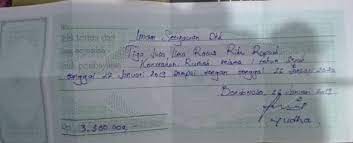 No.
Telah terima dari Imam Setyawan
Uang sejumlah Tiga Juta Lima Ratus Ribu Rupiah
Untuk pembayaran Kontrakan Rumah selama 1 tahun
tanggal 27 Januari 2019 sampai dengan tanggal 26 Januari 2020
Bondowoso, 26 Januari 2019
Yudha
Rp. 3.500.000,